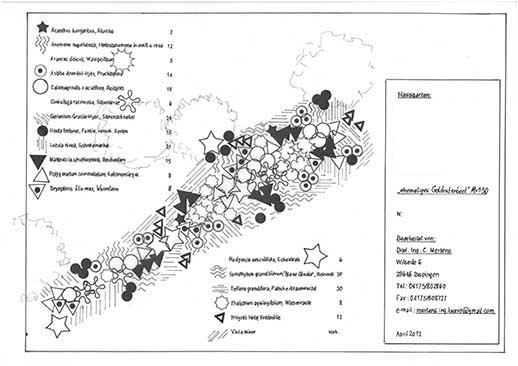 Acanthus hungaricus, Akanthus 2
Anemone hupehensis, Herbstanemone in weiß u. rosa 12
Aruncus dioicus, Waldgeißbart 5
Astilbe Arendsii Hybr., Prachtspiere 14
Calamagrostis x acutiflora, Reitgras 18
Cimicifuga racemosa, Silberkerze 6
Geranium Gracile Hybr., Storchschnabel
Hosta fortunei, Funkie, versch. Sorten 18
Luzula nivea, Schneemarbel
Matteuccia struthiopteris, Becherfarn 15
Polygonatum commutatum, Salomonsiegel 8
Dryopteris filix-mas, Wurmfarn 8
Rodgersia aesculifolia, Schaublatt 6
Symphytum grandiflorum "Blaue Glocken", Beinwell 30
Tellima grandiflora, Falsche Alraunwurzel 30
Thalictrum aquilegifolium, Wiesenraute 8
Tricyrtis hirta, Krötenlilie 12
Vinca minor vorh.
Hausgarten:
"ehemaliges Goldfischteich" M 1:50
N:
Bearbeitet von:
Dipl. Ing. C. Mertens
29646 Bispingen
Tel.:
Fax:
e-mail:
April 2012